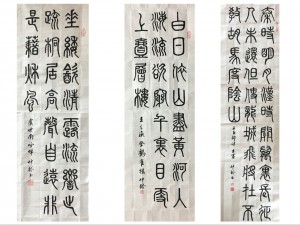 秦時明月漢時關萬里長征
人未還但使龍城飛將在不
教胡馬度陰山
白日依山盡黃河入
海流欲窮千里目更
上一層樓
王之渙登鸛雀樓
垂緌飲清露流響出
疏桐居高聲自遠非
是藉秋風
虞世南咏蟬